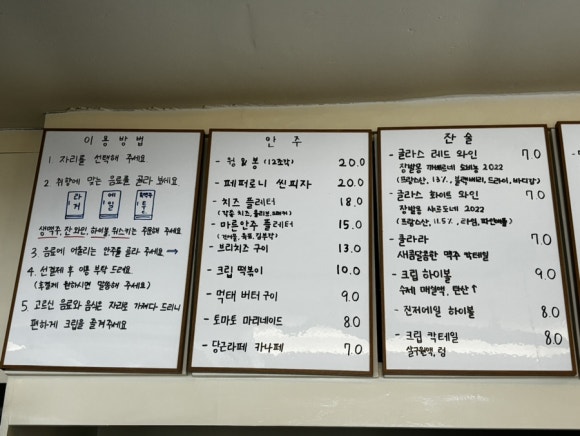 이용방법
1. 자리를 선택해 주세요
2. 취향에 맞는 음료를 골라 보세요
라거
에일
생맥주, 잔와인, 하이볼, 위스키는 주문해 주세요
3. 음료에 어울리는 안주를 골라 주세요 →
4. 선결제 후 이용 부탁 드려요
(후결제 원하시면 말씀해 주세요)
5. 고르신 음료와 음식은 자리로 가져다 드리니
편하게 크립을 즐겨주세요
안주
- 윙 & 봉 (12조각) 20.0
- 페퍼로니 씬피자 20.0
- 치즈 플레터 18.0
- 마른안주 플레터 15.0
- 브리치즈 구이 13.0
- 크립 떡볶이 10.0
- 먹태 버터구이 9.0
- 토마토 마리네이드 8.0
- 당근라페 카나페 7.0
잔술
- 글라스 레드 와인 7.0
장발몽 까베르네 쇼비뇽 2022
(프랑스산, 13%, 블랙베리, 드라이, 바디감)
- 글라스 화이트 와인 7.0
장발몽 샤르도네 2022
(프랑스산, 11.5%, 라임, 파인애플)
- 클라라 7.0
새콤달콤한 맥주 칵테일
- 크립 하이볼 9.0
수제 매실액, 탄산↑
- 진저에일 하이볼 8.0
- 크립 칵테일 8.0
살구원액, 럼